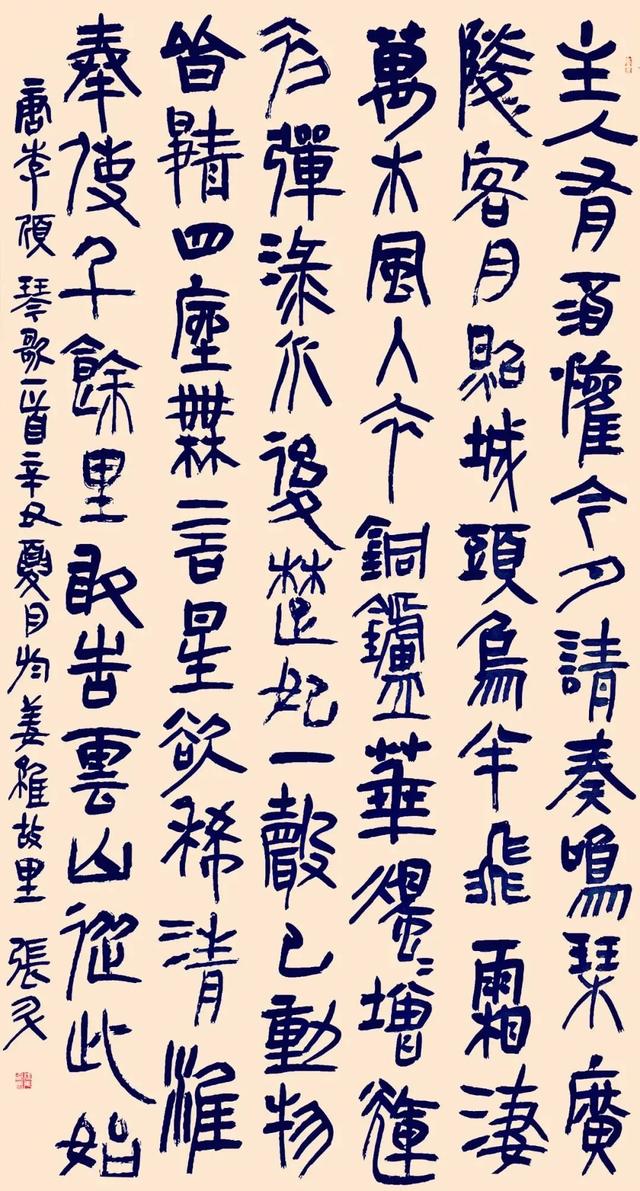 主人有酒懽今夕請奏鳴琴廣
陵客月照城頭烏半飛霜淒
萬木風入衣銅鑪華燭〻增輝
初彈淥水後楚妃一聲已動物
皆靜四座無言星欲稀清淮
奉使千餘里敢告雲山從此始
唐李頎琴歌一首辛丑夏月於姜維故里 張